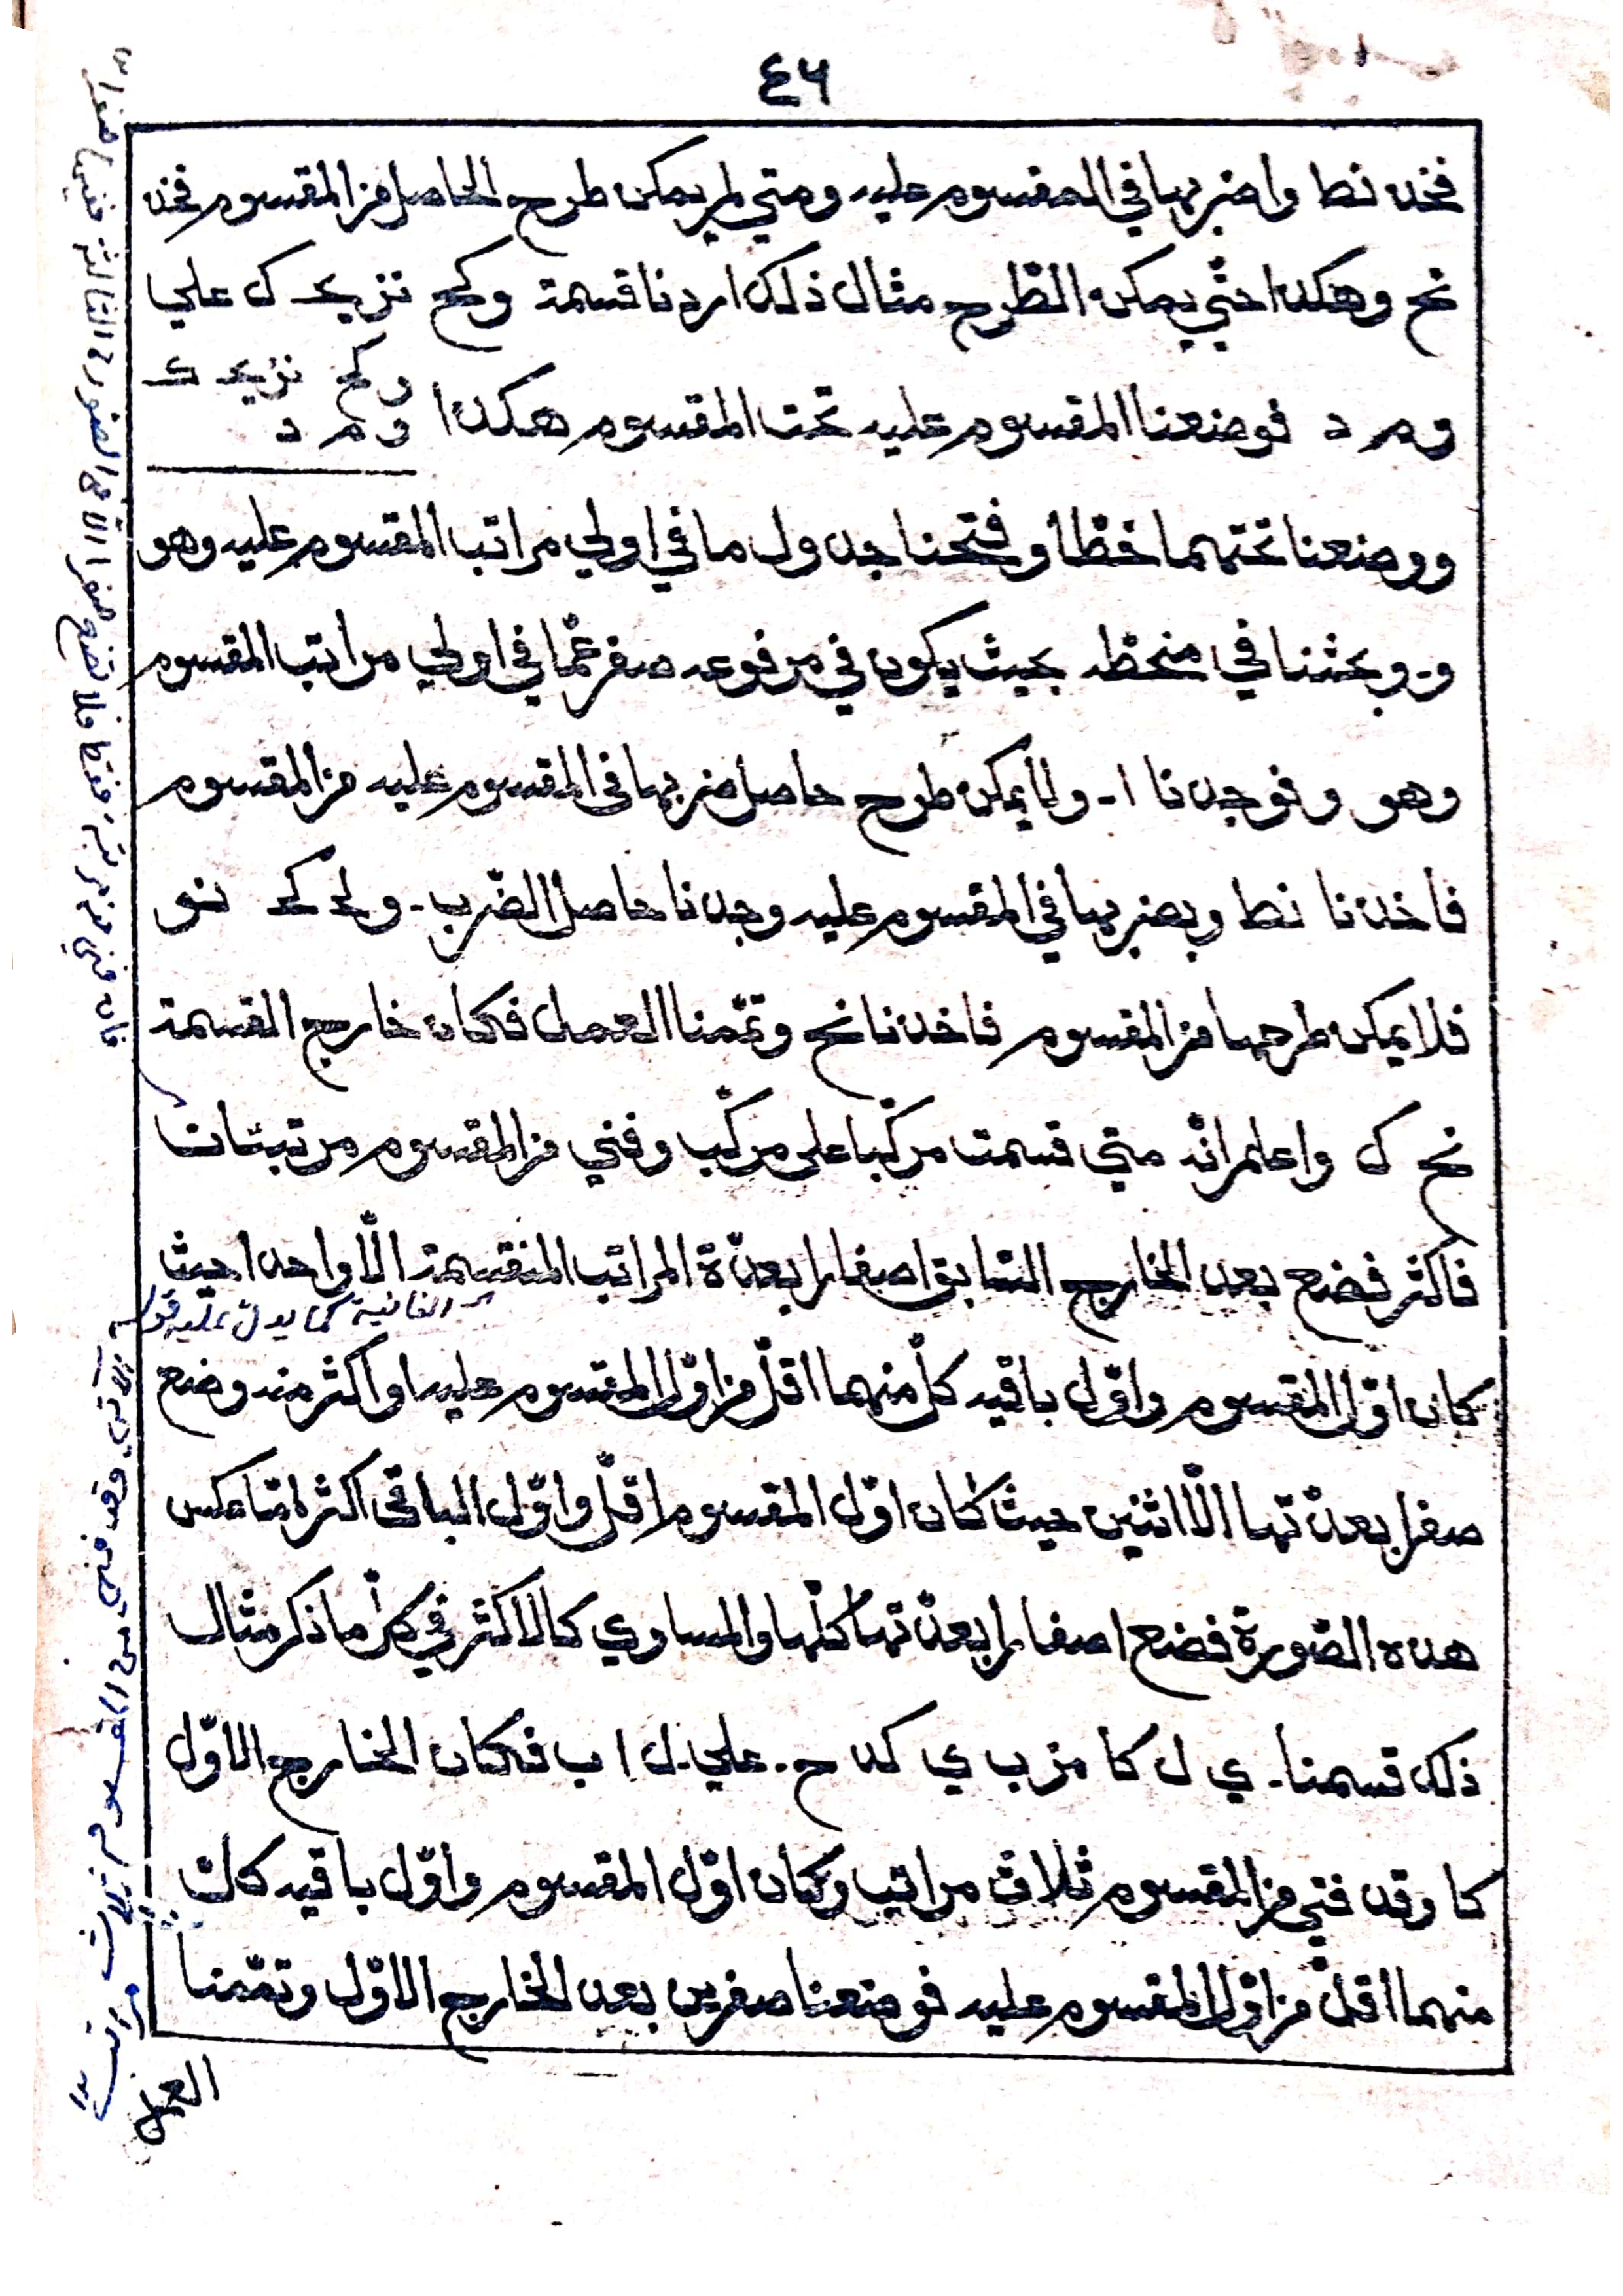 ٤٦
فخذ نط واضربها في المقسوم عليه ومتي لم يمكن طرح الحاصل من المقسوم فخذ
نح وهكذا حتّي يمكن الطّرح مثال ذلك اردنا قسمة و كح نز يح ك علي
و م د فوضعنا المقسوم عليه تحت المقسوم هكذا
و كح نز يح ك
و م د
ووضعنا تحتهما خطّا وفتحنا جدول ما في اولي مراتب المقسوم عليه وهو
و وبحثنا في منحطّه بحيث يكون في مرفوعه صفر عمّا في اولي مراتب المقسوم
وهو و فوجدنا ا ولا يمكن طرح حاصل ضربها في المقسوم عليه من المقسوم
فاخذنا نط وبضربها في المقسوم عليه وجدنا حاصل الضّرب و لح كح نو
فلا يمكن طرحها من المقسوم فاخذنا نح وتمّمنا العمل فكان خارج القسمة
نح ك واعلم انّه متي قسمت مركّبا على مركّب وفني من المقسوم مرتبتان
فاكثر فضع بعد الخارج السّابق اصفارا بعدّة المراتب المنقسمة الّا واحدا حيث
الفانية كما يدل عليه قوله
كان اوّل المقسوم واوّل باقيه كلّ منهما اقلّ من اوّل المقسوم عليه او اكثر منه وضع
صفرا بعدّتها الّا اثنين حيث كان اوّل المقسوم اقلّ واوّل الباقي اكثر امّا عكس
هذه الصّورة فضع اصفارا بعدّتها كلّها والمساوي كالاكثر في كلّ ما ذكر مثال
ذلك قسمنا ي ل كا من ب ي كد ح علي ل ا ب فكان الخارج الاوّل
كا وقد فني من المقسوم ثلاث مراتب وكان اوّل المقسوم واوّل باقيه كان
منهما اقلّ من اوّل المقسوم عليه فوضعنا صفرين بعد الخارج الاوّل وتمّمنا
العمل
الآتي وقد فني من المقسوم ثلاث مراتب